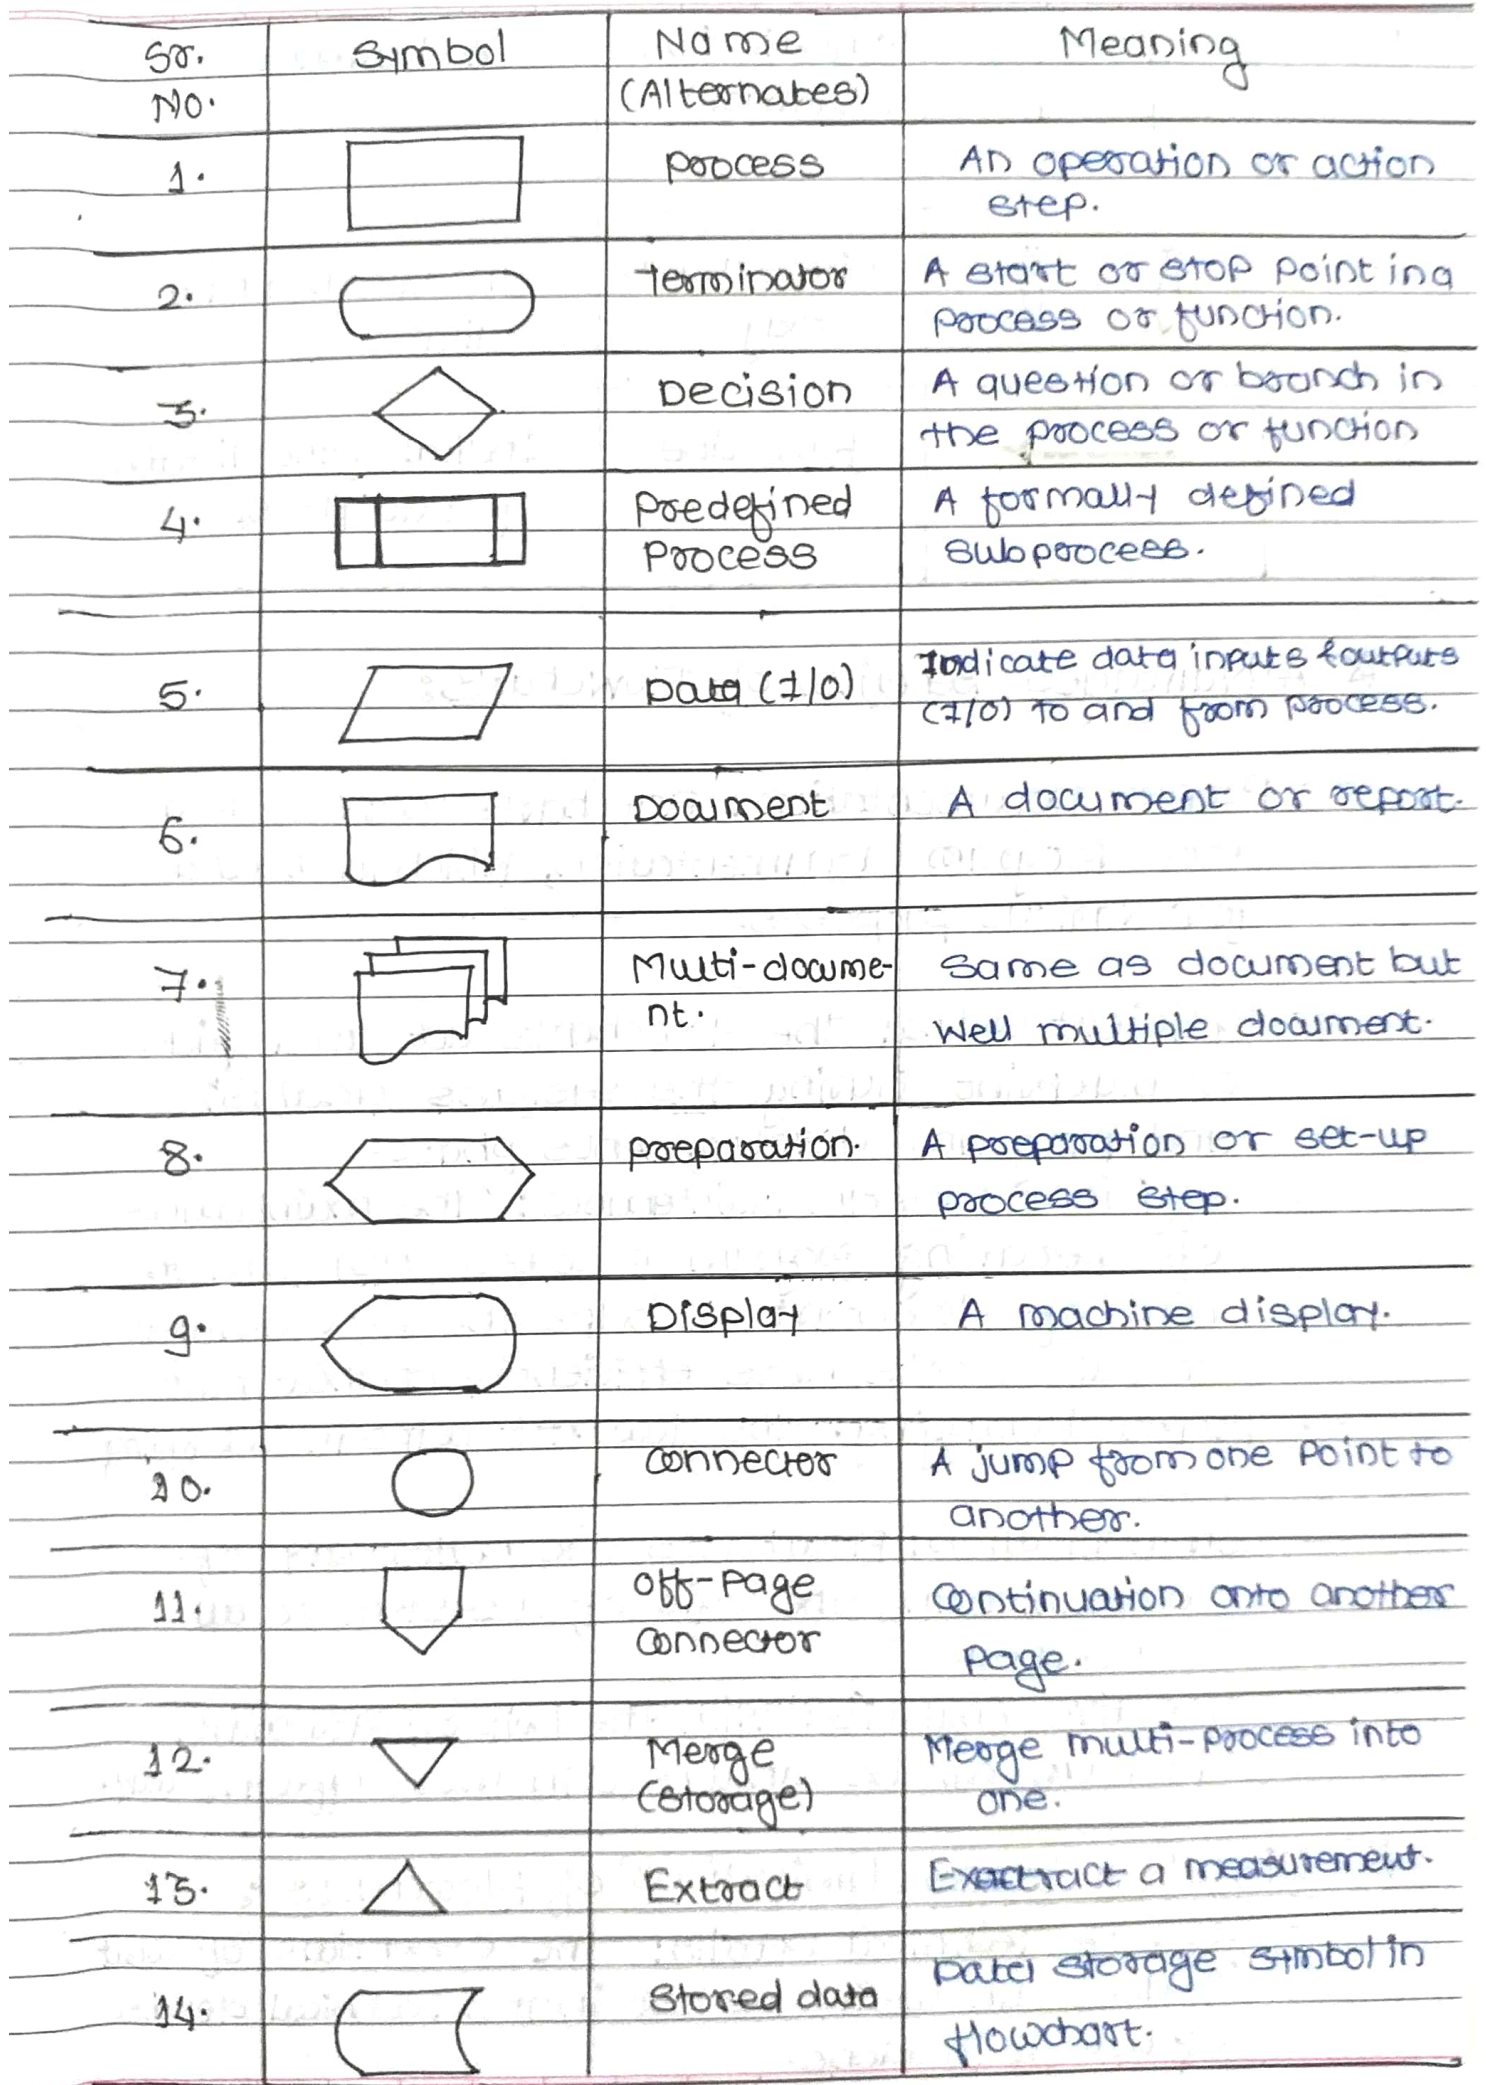 Sr. No. Symbol Name (Alternates) Meaning
1. Process An operation or action
step.
2. Terminator A start or stop point in a
process or function.
3. Decision A question or branch in
the process or function
4. Predefined Process A formally defined
subprocess.
5. Data (I/O) Indicate data inputs & outputs
(I/O) to and from process.
6. Document A document or report.
7. Multi-docume-
nt. Same as document but
well multiple document.
8. preparation. A preparation or set-up
process step.
9. Display A machine display.
10. Connector A jump from one point to
another.
11. Off-page
Connector Continuation onto another
page.
12. Merge
(storage) Merge multi-process into
one.
13. Extract Exactract a measurement.
14. Stored data Data storage symbol in
flowchart.